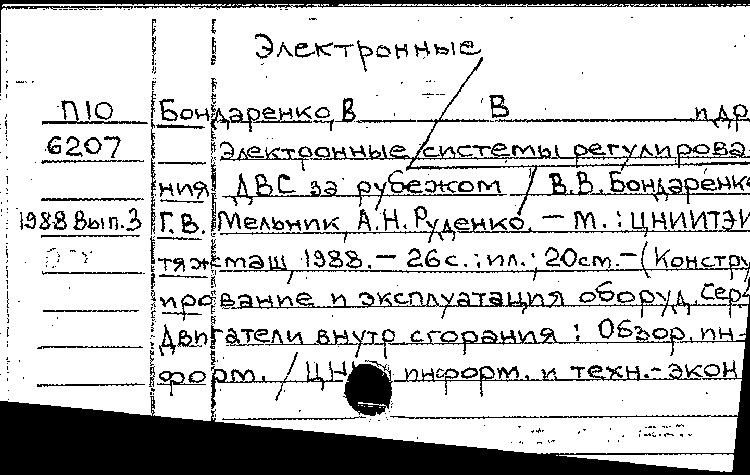 Электронные
П10 Бондаренко, В В и др
6207 Электронные системы регулирова-
ния ДВС за рубежом / В.В. Бондаренко
1988 Вып.3 Г.В. Мельник, А.Н. Руденко. – М.: ЦНИИТЭИ
тяжмаш, 1988. – 26с.: ил.; 20см. – (Констру
ирование и эксплуатация оборуд. Сер.
Двигатели внутр сгорания : Обзор. ин-
форм. / ЦНИИ информ. и техн.-экон